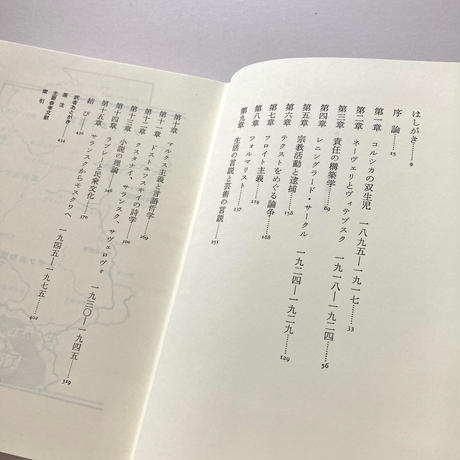 はしがき……9
序論……15
第一章 コルシカの双生児 一八九五―一九一七……33
第二章 ネーヴェリとヴィテプスク 一九一八―一九二四……56
第三章 責任の構築学……69
第四章 レニングラード・サークル 一九二四―一九二九……129
第五章 宗教活動と逮捕……158
第六章 テクストをめぐる論争……188
第七章 フロイト主義……219
第八章 フォルマリスト……237
第九章 生活の言説と芸術の言説……251
第十章 マルクス主義と言語哲学……269
第十一章 ドストエフスキイの詩学……306
第十二章 クスタナイ、サランスク、サヴェロヴォ 一九三〇―一九四五……319
第十三章 小説の理論……348
第十四章 ラブレーと民衆文化……370
第十五章 サランスクからモスクワへ 一九四五―一九七五……402
結び……434
訳者あとがき
原注
主要参考文献
索引